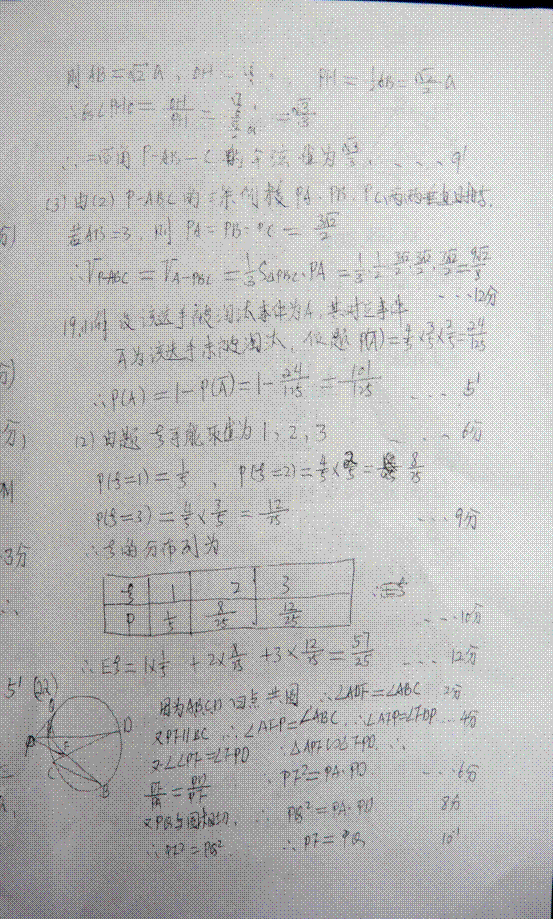 则 AB=√2 a, PH=½AB=√2/2 a
=√3/3
∴二面角 P-AB-C 的余弦值为 √3/3. ... 9'
(3) 由(2) P-ABC 的三条侧棱 PA. PB. PC 两两垂直
若AB=3, 则 PA=PB=PC=3√2/2
∴V_{P-ABC}=V_{A-PBC}=1/3 S_{△PBC}·PA=1/3·1/2·3√2/2·3√2/2·3√2/2=9√2/8
...12分
19.(1)解 设该选手被淘汰事件为A, 其对立事件
Ā为该选手未被淘汰, 依题 P(Ā)=4/5×3/5×2/5=24/125
∴P(A)=1-P(Ā)=1-24/125=101/125 ... 5'
(2) 由题 ξ可能取值为 1, 2, 3 ... 6分
P(ξ=1)=1/5, P(ξ=2)=4/5×2/5=8/25
P(ξ=3)=4/5×3/5=12/25 ... 9分
∴ξ的分布列为
ξ 1 2 3 ∴Eξ
P 1/5 8/25 12/25 ... 10分
∴Eξ=1×1/5+2×8/25+3×12/25=57/25 ... 12分
5' (22)
因为ABCD四点共圆 ∴∠ADF=∠ABC 2分
又PF∥BC ∴∠AFP=∠ABC ∴∠AFP=∠FDP ... 4分
又∠APF=∠FPD ∴△APF∽△FPD ∴
PF/PA=PD/PF ∴PF²=PA·PD ... 6分
又PQ与圆相切, ∴PQ²=PA·PD 8分
∴PF²=PQ² ∴PF=PQ 10'
分)
3分
A
P
C
B
D